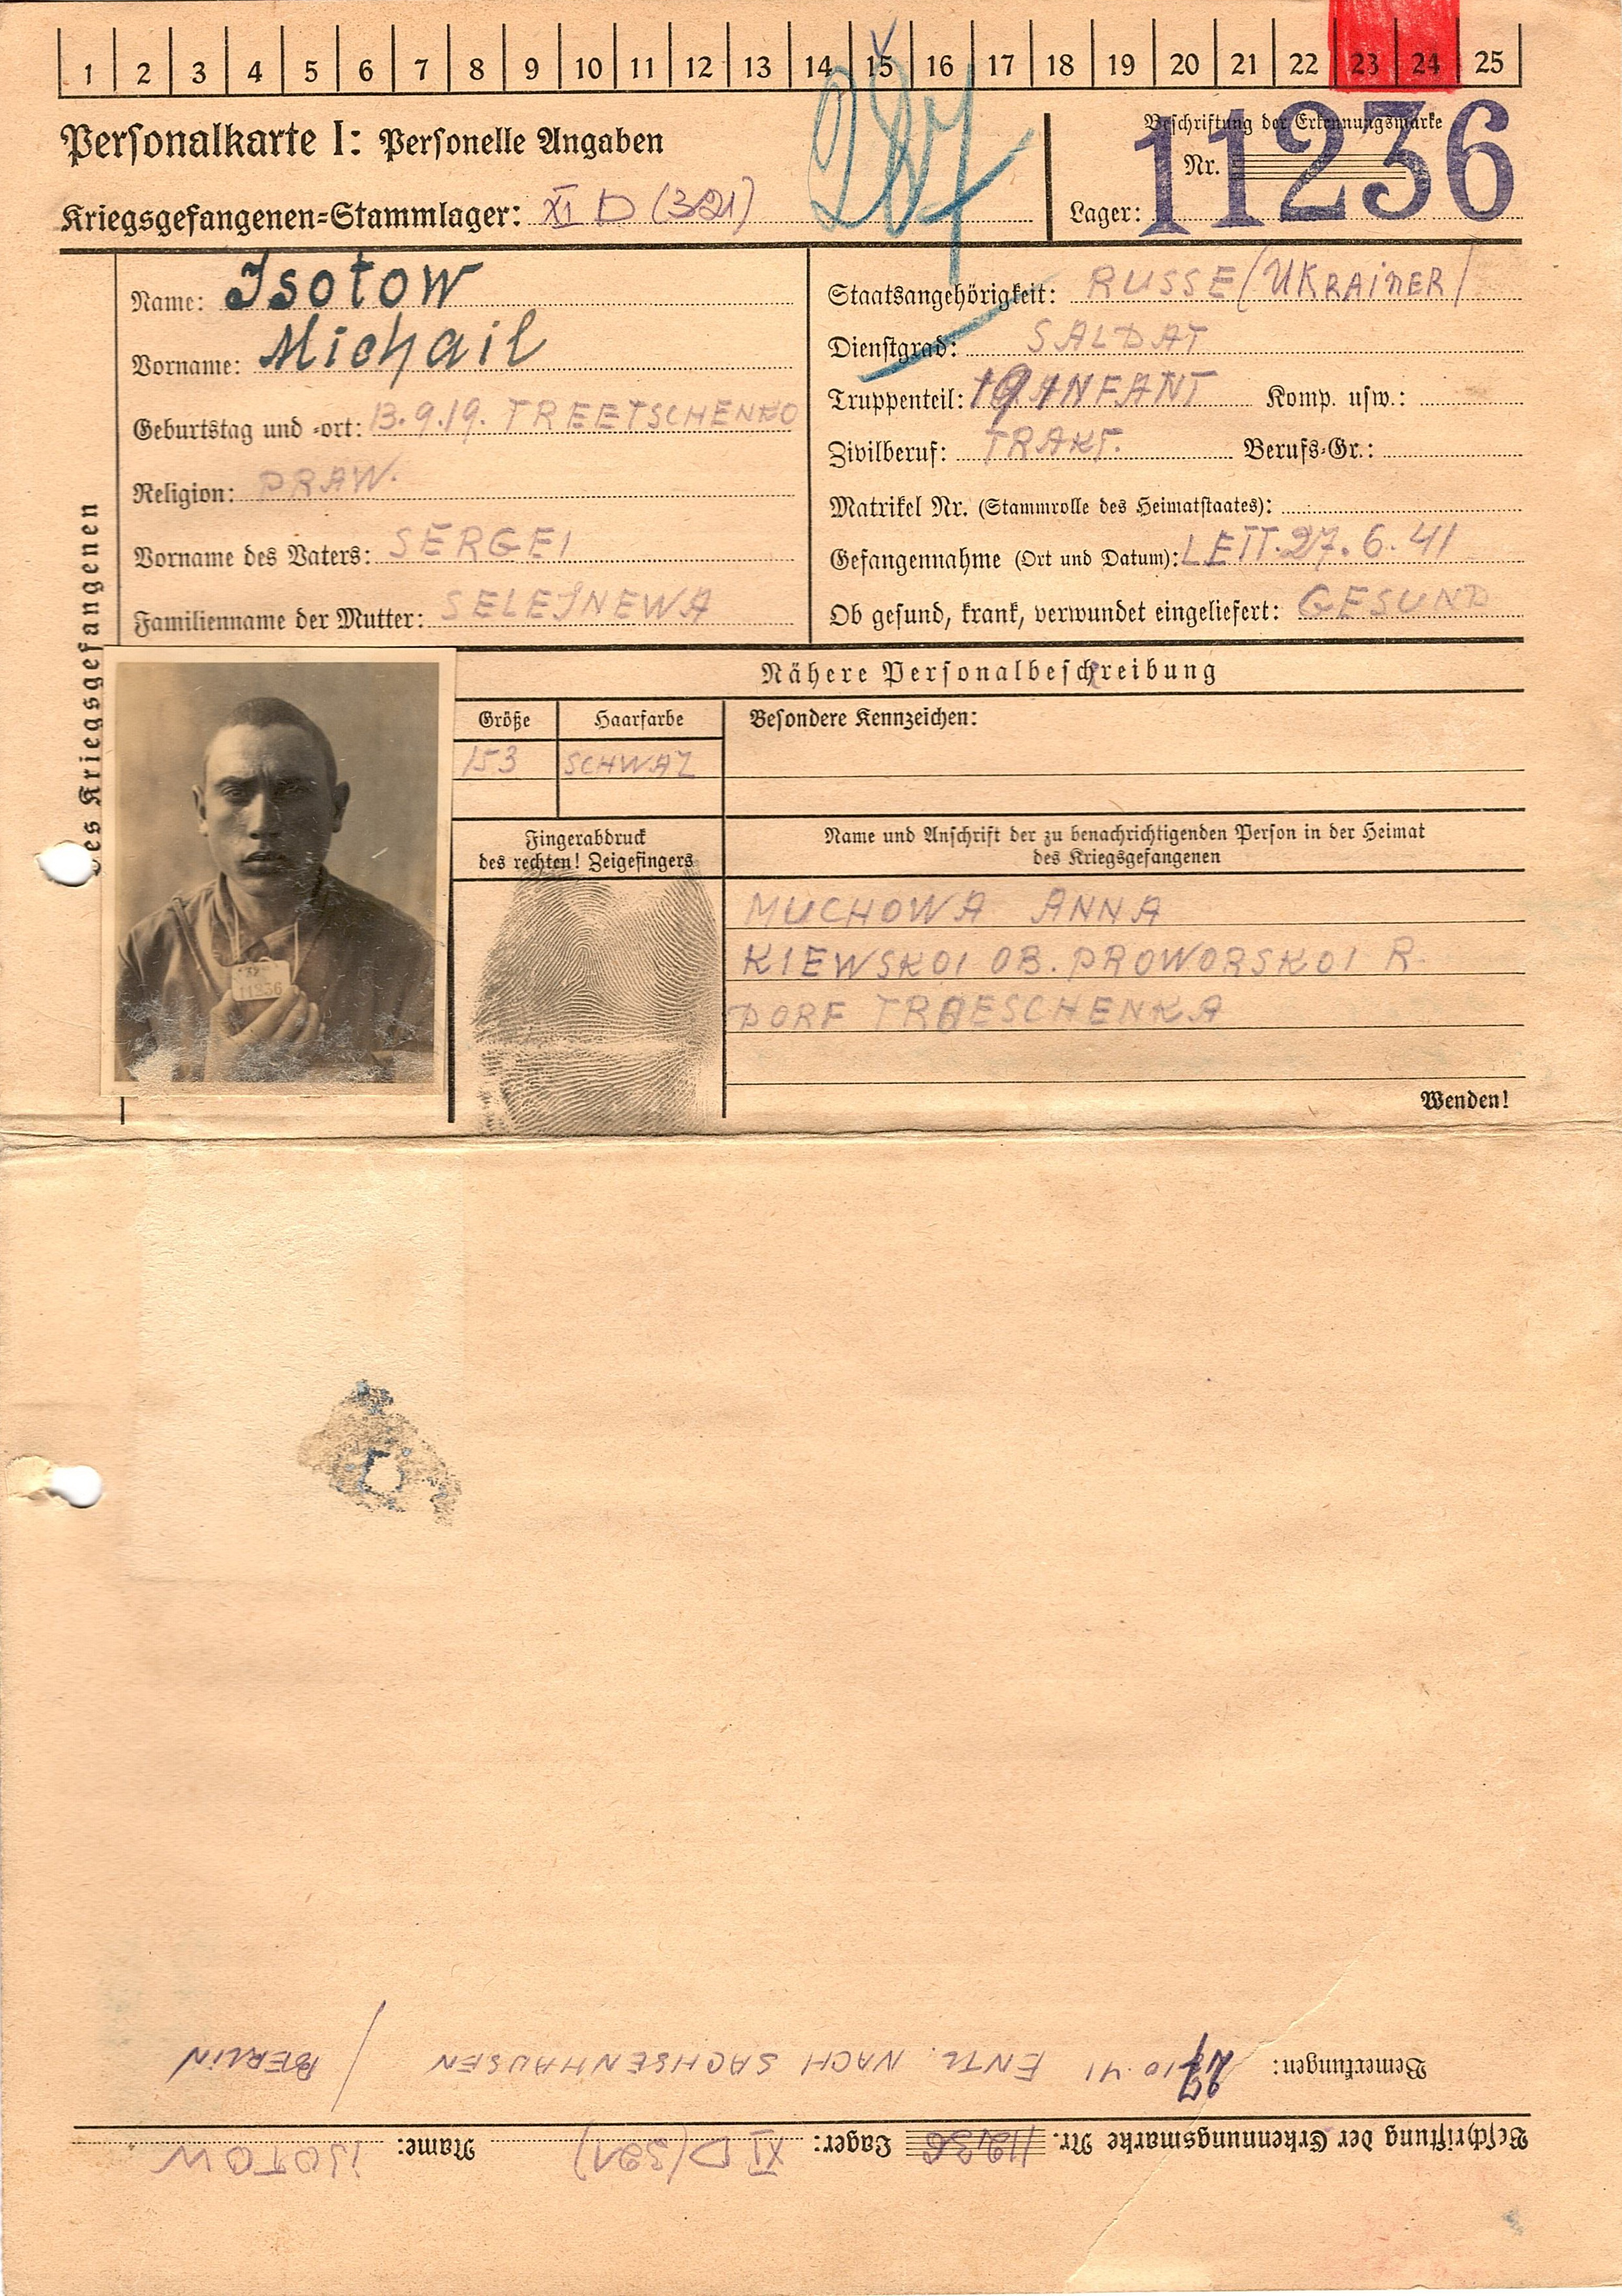 1 2 3 4 5 6 7 8 9 10 11 12 13 14 15 16 17 18 19 20 21 22 23 24 25
Personalkarte I: Personelle Angaben
Kriegsgefangenen=Stammlager: XI D (321)
Beschriftung der Erkennungsmarke
Nr. 11236
Lager:
des Kriegsgefangenen
Name: Isotow
Vorname: Michail
Geburtstag und =ort: 13.9.19. TREETSCHENKO
Religion: PRAW.
Vorname des Vaters: SERGEI
Familienname der Mutter: SELEJNEWA
Staatsangehörigkeit: RUSSE/UKRAINER/
Dienstgrad: SALDAT
Truppenteil: 191 INFANT Komp. usw.:
Zivilberuf: TRAKT. Berufs=Gr.:
Matrikel Nr. (Stammrolle des Heimatstaates):
Gefangennahme (Ort und Datum): LETT. 27.6.41
Ob gesund, krank, verwundet eingeliefert: GESUND
Nähere Personalbeschreibung
Größe Haarfarbe Besondere Kennzeichen:
153 SCHWAZ
Fingerabdruck
des rechten! Zeigefingers
Name und Anschrift der zu benachrichtigenden Person in der Heimat
des Kriegsgefangenen
11236
MUCHOWA ANNA
KIEWSKOI OB. PROWORSKOI R.
DORF TRAESCHENKA
Wenden!
Beschriftung der Erkennungsmarke Nr. 11236 Lager: XI D (321) Name: ISOTOW
Bemerkungen: 10.41 ENTL. NACH SACHSENHAUSEN / BERLIN